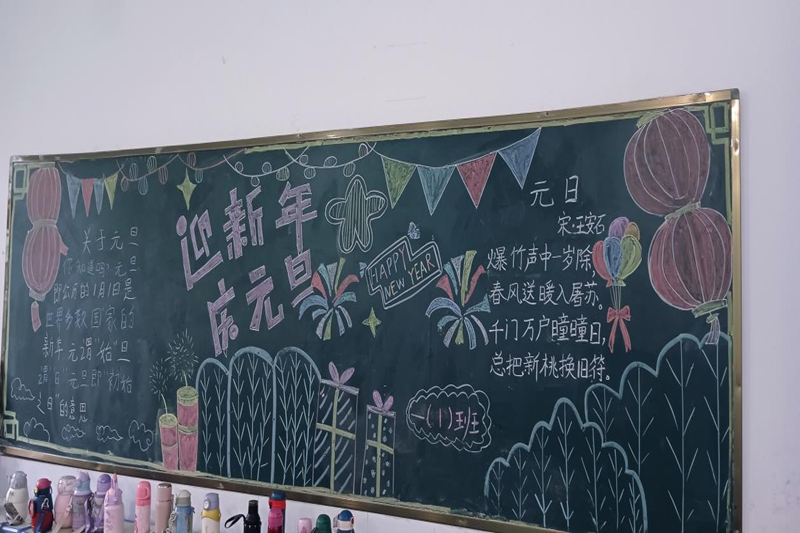 关于元旦
你知道吗？元旦
即公历的1月1日是
世界多数国家的
新年元谓"始"旦
谓"日"元旦即"初始
之日"的意思
迎新年
庆元旦
HAPPY
NEW YEAR
元日
宋:王安石
爆竹声中一岁除,
春风送暖入屠苏。
千门万户曈曈日,
总把新桃换旧符。
一(1)班